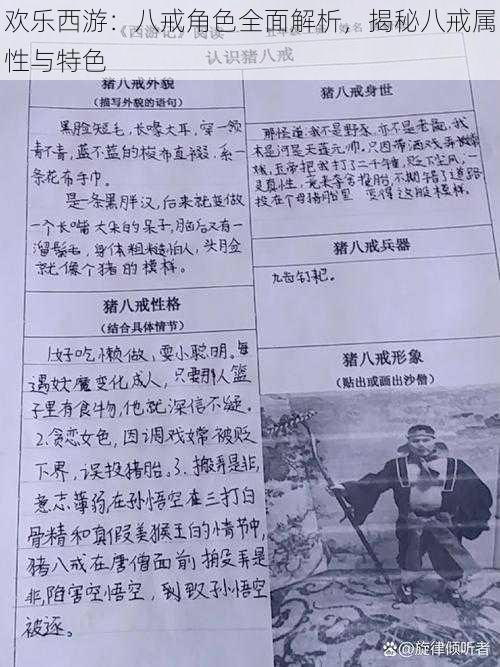 欢乐西游：八戒角色全面解析，揭秘八戒属
性与特色
《西游记》阅读
姓名
认识猪八戒
猪八戒外貌
（描写外貌的语句）
黑脸短毛，长喙大耳，穿一领
青不青，蓝不蓝的梭布直裰，系一
条花布手巾。
是一条黑胖汉，后来就变做
一个长嘴大耳的呆子，脑后又有一
溜鬃毛，身体粗糙怕人，头脸
就像个猪的模样。
猪八戒性格
（结合具体情节）
1.好吃懒做，耍小聪明。每
遇妖魔变化成人，只要那人篮
子里有食物，他就深信不疑。
2.贪恋女色，因调戏嫦被贬
下界，误投猪胎。3.搬弄是非，
意志薄弱，在孙悟空在三打白
骨精和真假美猴王的情节中，
猪八戒在唐僧面前拨弄是
非，陷害空悟空，到致孙悟空
被逐。
猪八戒身世
那怪道：我不是野豕，亦不是老彘，我
本是河是天蓬元帅，只因带酒戏弄嫦
娥，玉帝把我打了二千锤，贬下尘凡，一
灵真性，竟来夺舍投胎，不期错了道路
投在个母猪胎里 变得这般模样。
猪八戒兵器
九齿钉耙。
猪八戒形象
（贴出或画出沙僧）
@旋律倾听者